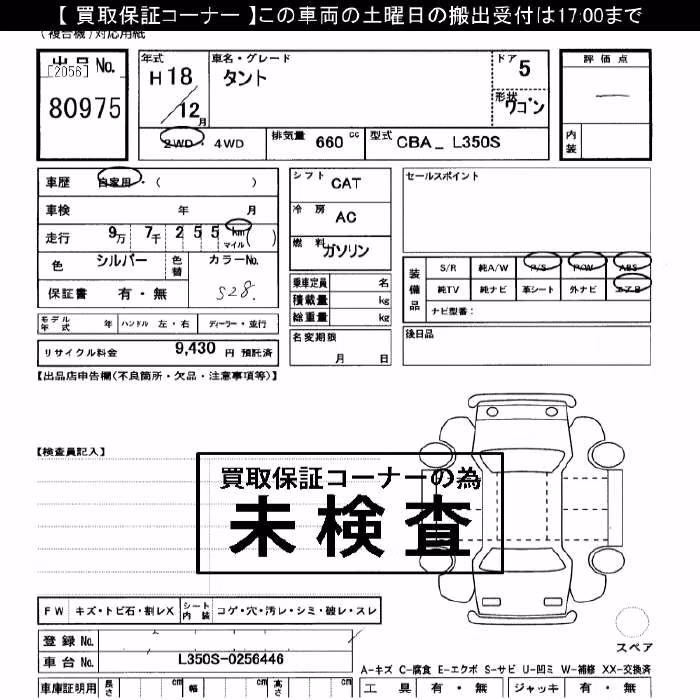 【 買取保証コーナー 】この車両の土曜日の搬出受付は17:00まで
(複合機)対応用紙
出品No.
[2056]
80975
年式
H18
12月
車名・グレード
タント
ドア 5
形状 ワゴン
評価点
内装
2WD・4WD
排気量 660 cc
型式 CBA_ L350S
車歴 自家用・( )
車検 年 月
走行 9万 7千 2 5 5 km マイル ( )
色 シルバー
色替
カラーNo.
S28.
保証書 有・無
シフト CAT
冷房 AC
燃料 ガソリン
乗車定員 名
積載量 kg
総重量 kg
セールスポイント
装備品
S/R 純A/W P/S P/W ABS
純TV 純ナビ 革シート 外ナビ エアB
ナビ型番:
モデル年式 年 ハンドル 左・右 ディーラー・並行
リサイクル料金 9,430 円 預託済
名変期限
月 日
後日品
【出品店申告欄(不良箇所・欠品・注意事項等)】
【検査員記入】
買取保証コーナーの為
未検査
FW キズ・トビ石・割レX シート内装 コゲ・穴・汚レ・シミ・破レ・スレ
登録No.
車台No. L350S-0256446
スペア
A-キズ C-腐食 E-エクボ S-サビ U-凹ミ W-補修 XX-交換済
車庫証明用 長さ cm 幅 cm 高さ cm
工具 有・無 ジャッキ 有・無